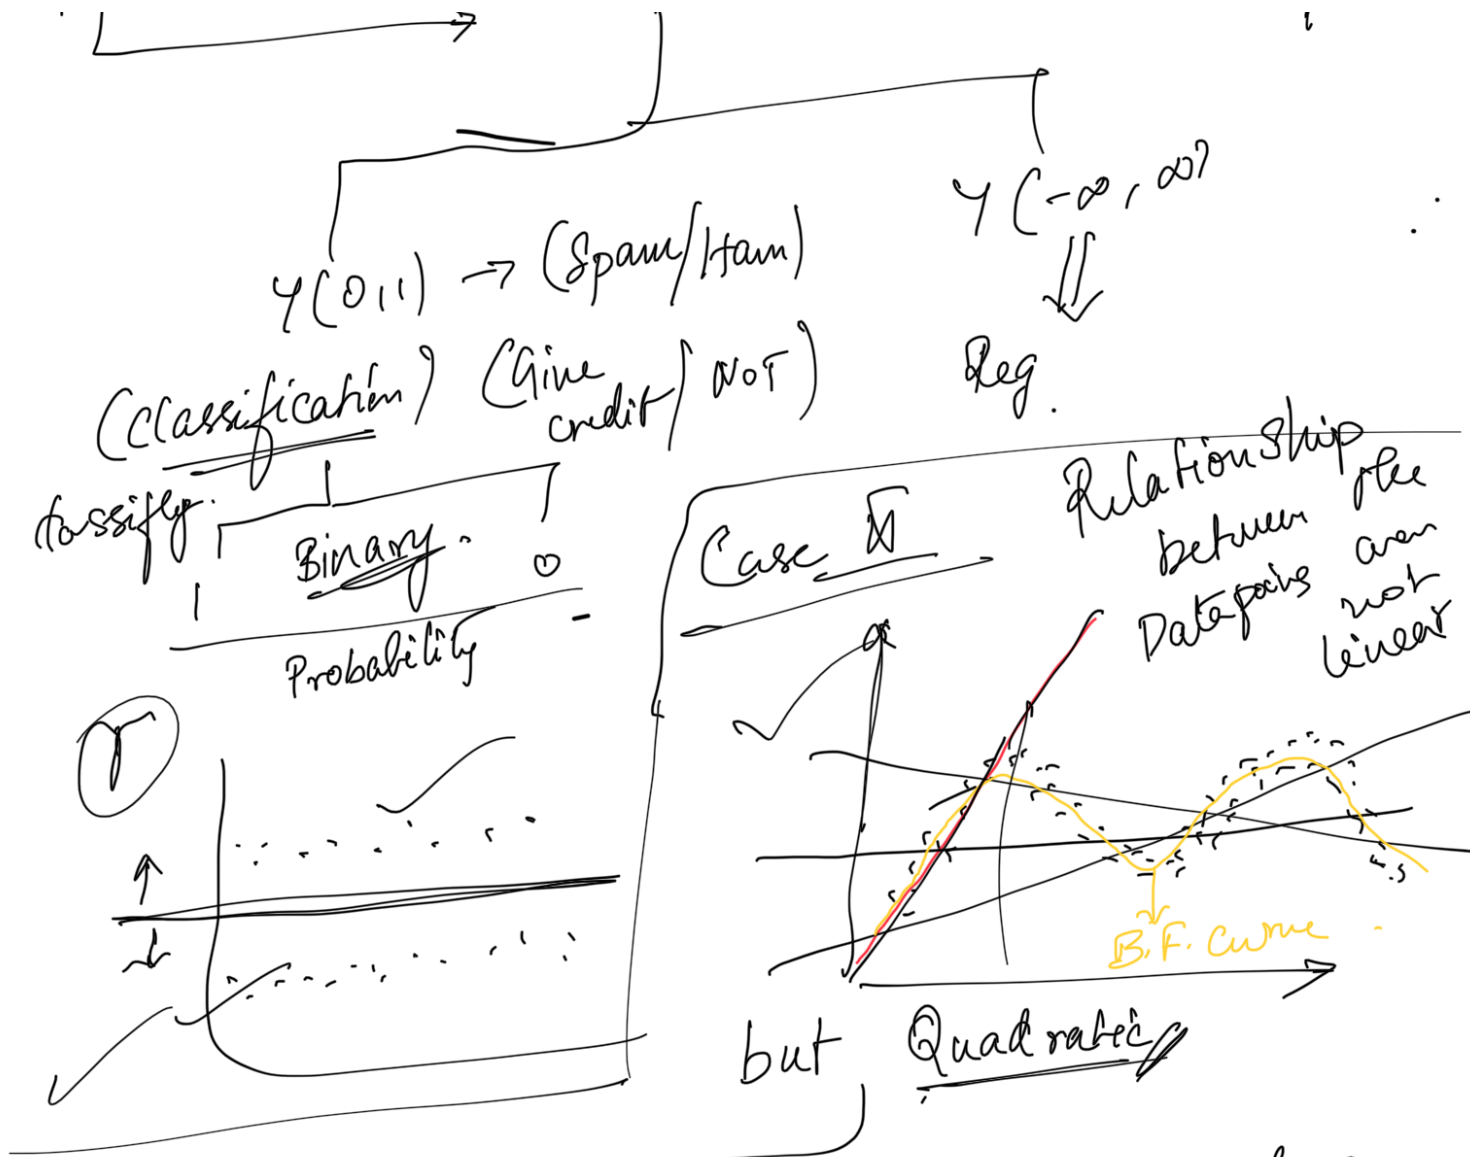 Y(0,1) → (Spam/Ham)
(Classification) (Give credit/NOT)
classify.
Binary.
1
0
Probability
Y(-∞, ∞)
Reg.
Case
Relationship
between the
Datapoins are
not
linear
B.F. Curve
but Quadratic